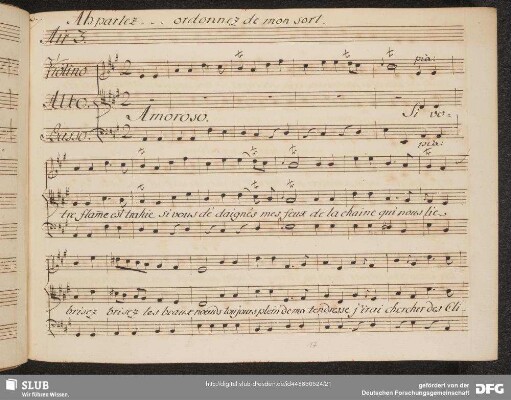 Ah parlez . . . ordonnez de mon sort.
Air 3.
Violino
pia:
Alto.
Amoroso.
Si vo-
Basso.
pia:
tre flame est trahie si vous dédaignés mes feux de la chaine qui nous lie
brisez brisez les beaux nœuds toujours plein de ma tendresse j'irai chercher des Cli-
SLUB
Wir führen Wissen.
http://digital.slub-dresden.de/id448650924/21
gefördert von der
Deutschen Forschungsgemeinschaft
DFG